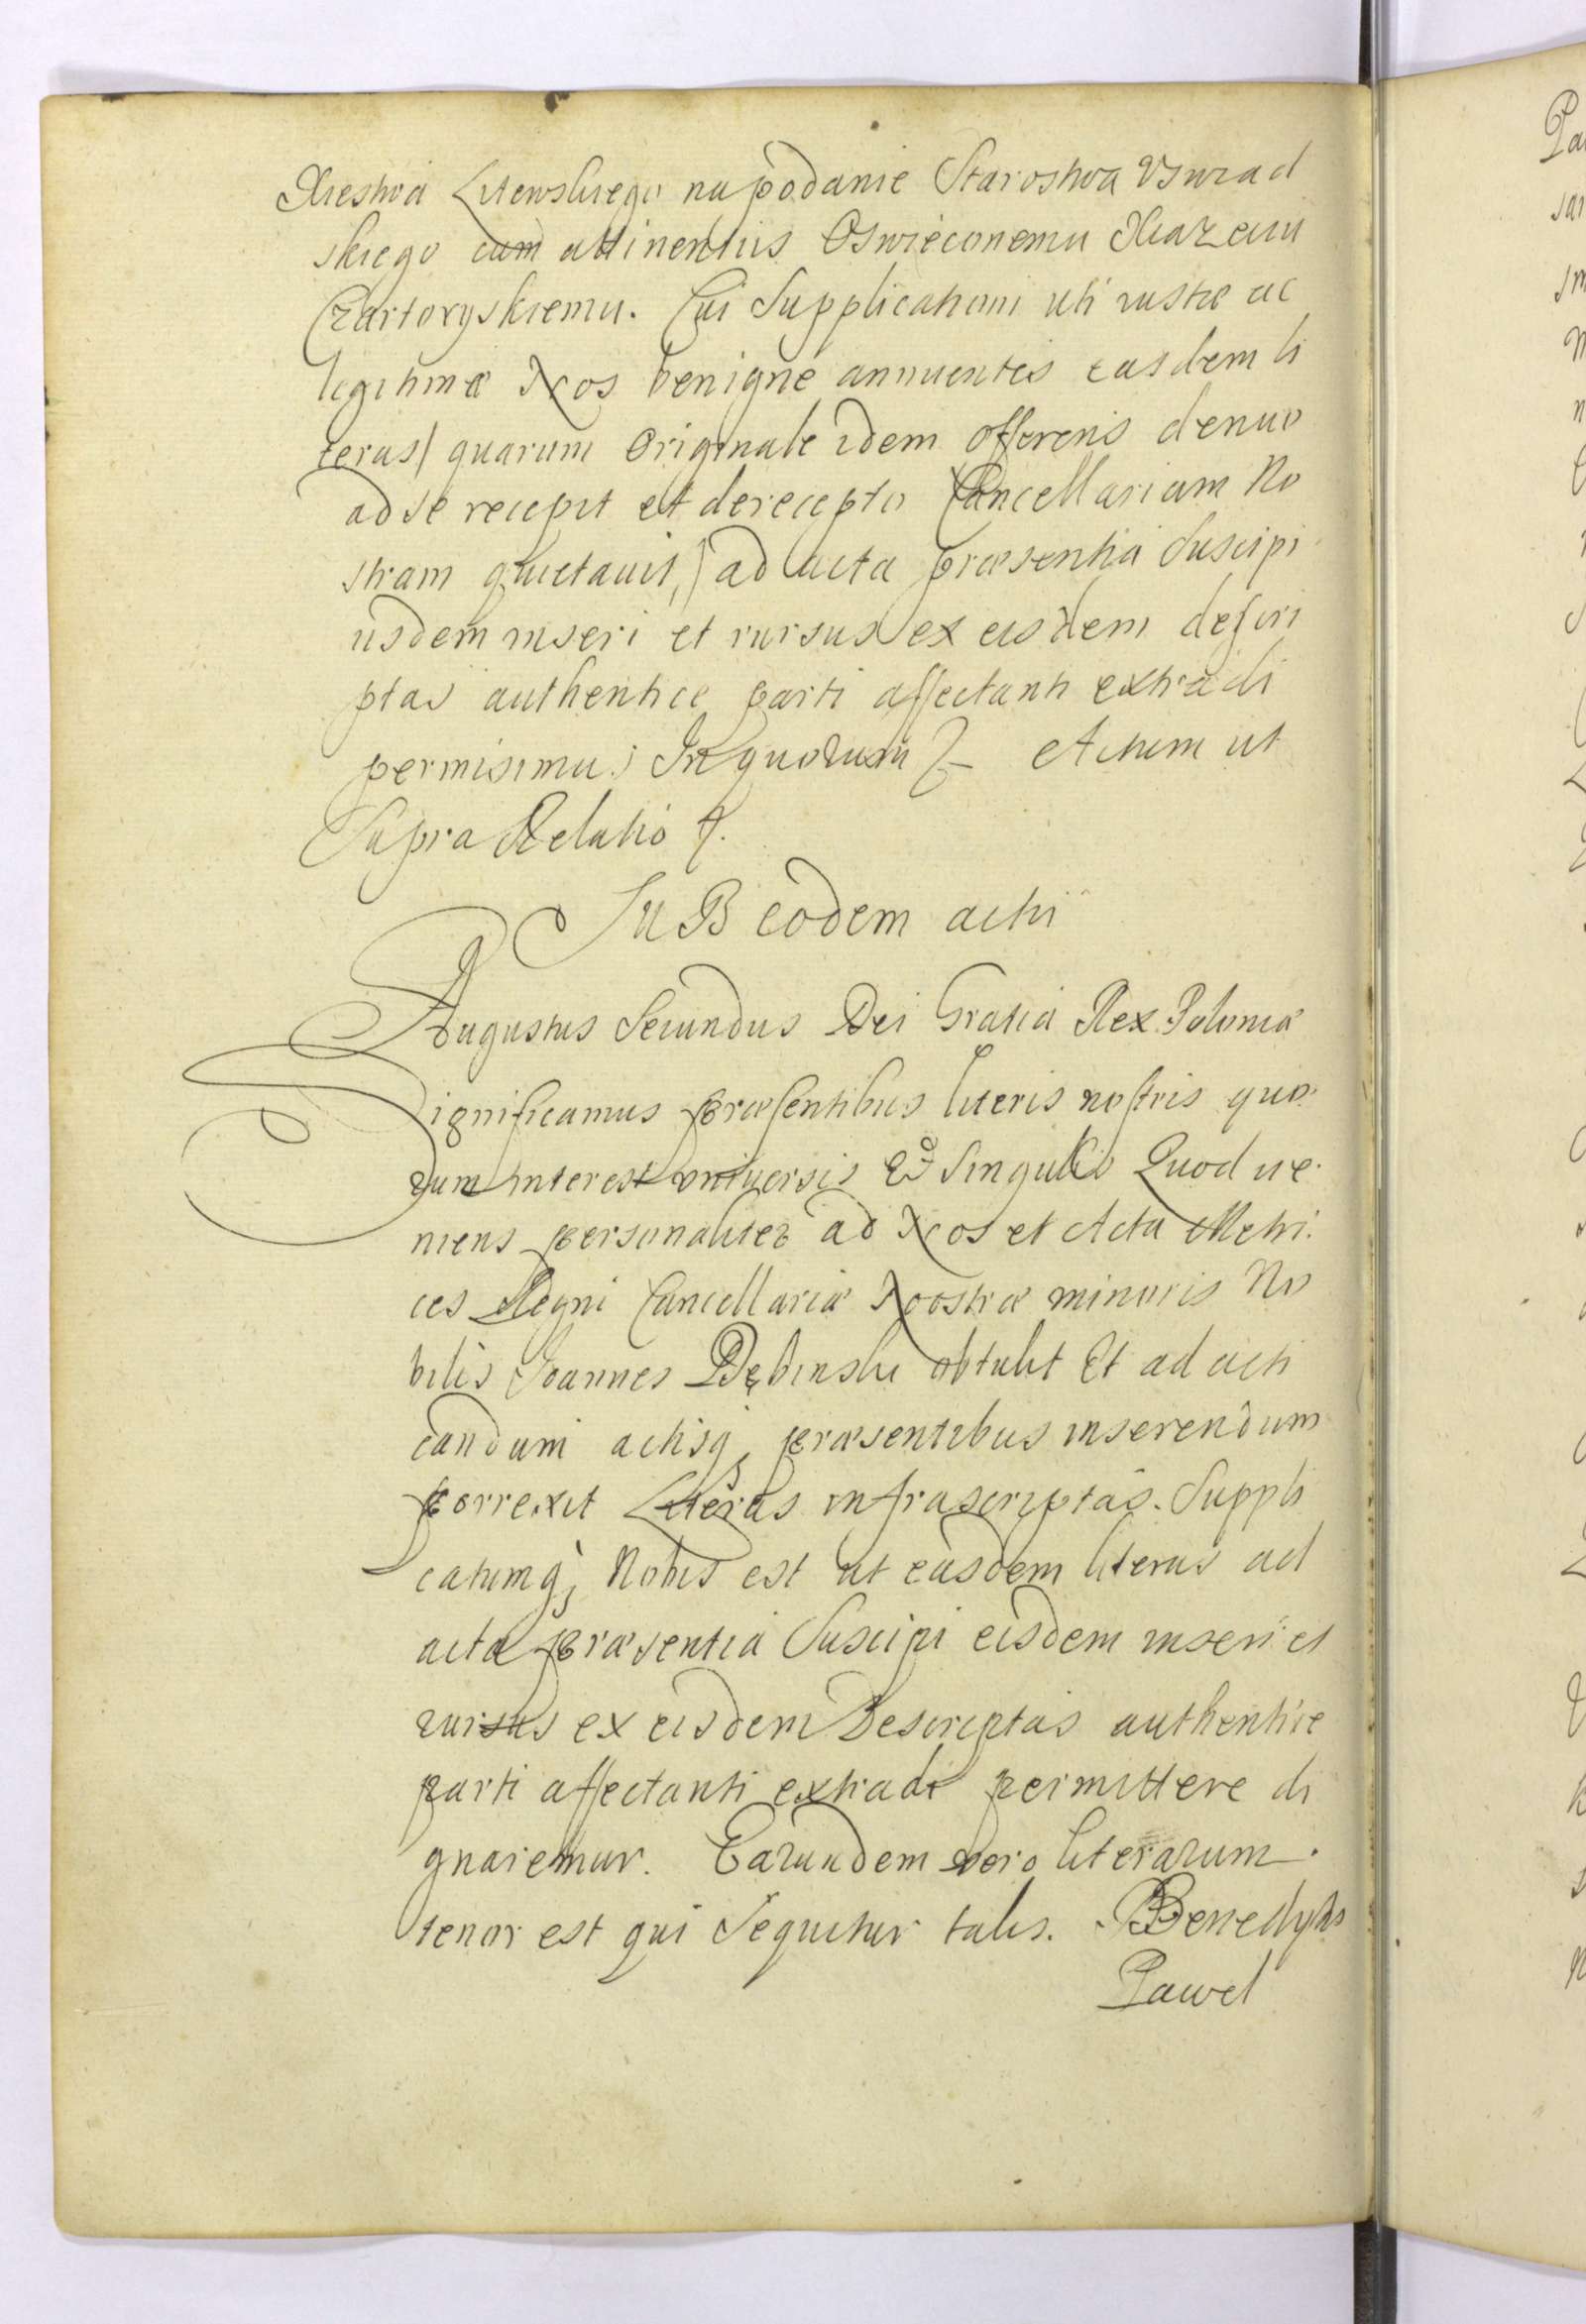 Xiestwa Litewskiego na podanie Starostwa Vswiad
skiego cum attinentiis Oswieconemu Xiazeciu
Czartoryskiemu. Cui Supplicationi uti iustæ ac
legitimæ Nos benigne annuentes easdem li
teras/ quarum Originale idem offerens denuo
ad se recepit et de recepto Cancellariam No
stram quietauit,/ ad acta præsentia Suscipi
iisdem inseri et rursus ex eisdem descri
ptas authentice parti affectanti extradi
permisimus In quorum Actum ut
Supra Relatio
SUB eodem actu
Augustus Secundus Dei Gratia Rex Poloniæ
Significamus præsentibus literis nostris quo
rum interest vniuersis Et Singulis Quod ve
niens personaliter ad Nos et Acta Metri
ces Regni Cancellariæ Nostræ minoris No
bilis Joannes Dębinski obtulit Et ad acti
candum actisq, præsentibus inserendum
porrexit Literas infrascriptas. Suppli
catumq, Nobis est ut easdem literas ad
acta præsentia Suscipi eisdem inseri et
rursus ex eisdem Descriptas authentice
parti affectanti extradi permittere di
gnaremur. Earundem vero literarum
tenor est qui Sequitur talis. Benedykt
Pawel